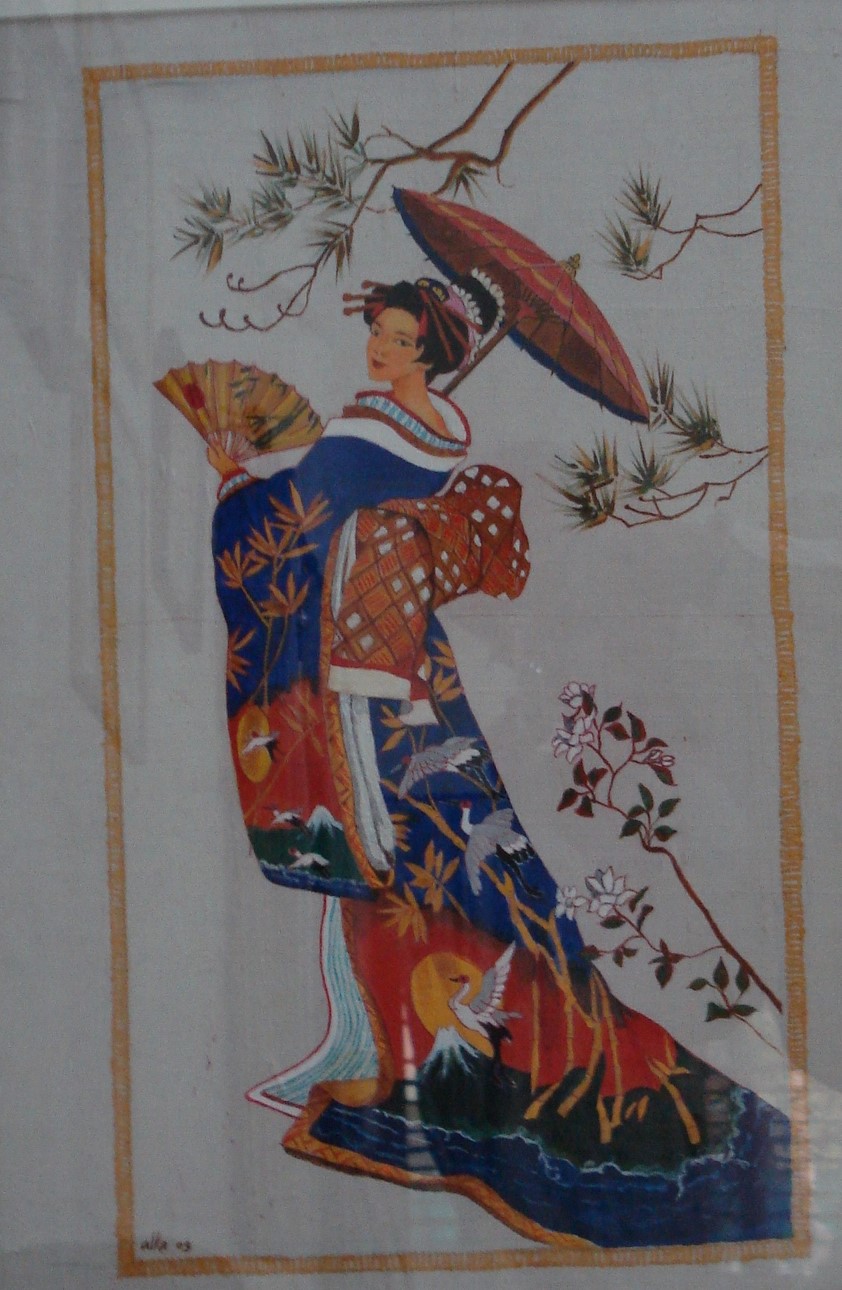 alka 03